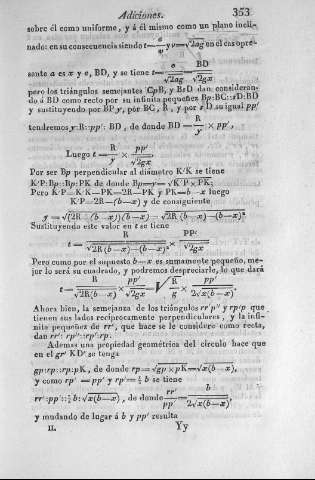 Adiciones. 353
sobre él como uniforme, y á él mismo como un plano incli-
nado: en su consecuencia siendo t=a/v y v=√2ag en el caso pre-
sente a es x y e, BD, y se tiene t= a/√2ag = BD/√2gx
pero los triángulos semejantes CpB, y BsD dan, consideran-
do á BD como recto por su infinita pequeñez Bp:BC::sD:BD
y sustituyendo por BP y, por BC, R, y por sD su igual pp'
tendremos y:R::pp': BD, de donde BD = R/y × pp',
Luego t = R/y × pp'/√2gx.
Por ser Bp perpendicular al diámetro K'K se tiene
K'P:Bp::Bp:PK de donde Bp=y=√K'P×PK;
Pero K'P=K'K—PK=2R—PK y PK=b—x luego
K'P=2R—(b—x) y de consiguiente
y=√(2R—(b—x))(b—x)=√2R(b—x)—(b—x)²
Sustituyendo este valor en t se tiene
t= R/√2R(b—x)—(b—x)² × pp'/√2gx
Pero como por el supuesto b—x es sumamente pequeño, me-
jor lo será su cuadrado, y podremos despreciarle, lo que dará
t= R/√2R(b—x) × pp'/√2gx = √R/g × pp'/2√x(b—x).
Ahora bien, la semejanza de los triángulos rr'p'' y rp'p que
tienen sus lados reciprocamente perpendiculares, y la infi-
nita pequeñez de rr', que hace se le considere como recta,
dan rr': rp''::rp':rp.
Ademas una propiedad geométrica del círculo hace que
en el gr' KD' se tenga
gp:rp::rp:pK, de donde rp=√gp×pK=√x(b—x),
y como rp' = pp' y rp'=½ b se tiene
rr':pp'::½ b:√x(b—x), de donde rr'/pp' = b/2√x(b—x),
y mudando de lugar á b y pp' resulta
II. Yy